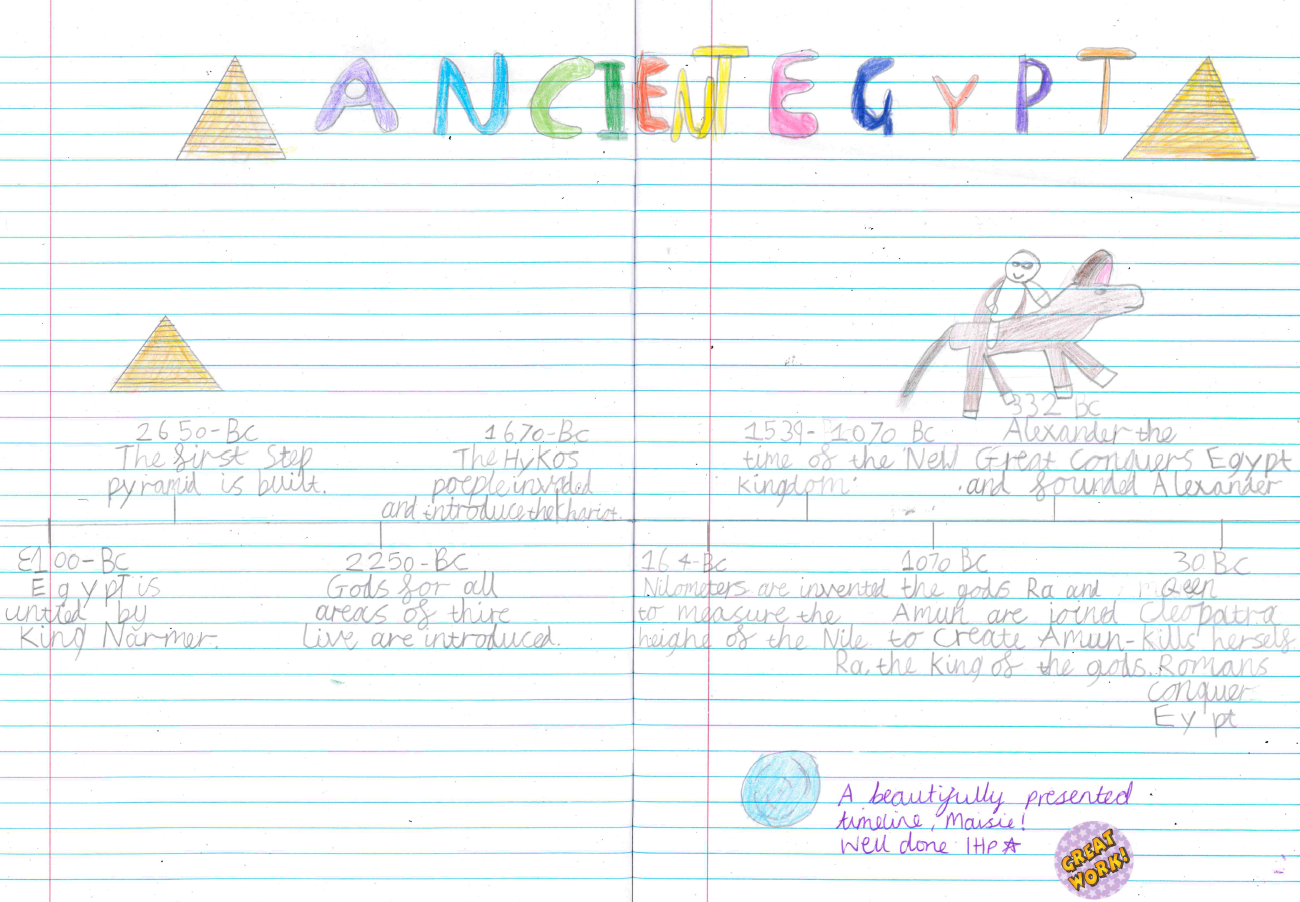 ANCIENT EGYPT
2650-BC
The first Step
pyramid is built.
1670-BC
The HyKos
poeple invaded
and introduce the Chariot.
1539-1070 BC
time of the New
Kingdom
332 BC
Alexander the
Great Conquers Egypt
.and founded Alexander
3100-BC
Egypt is
untied by
King Narmer.
2250-BC
Gods for all
areas of thire
live are introduced.
164-BC
Nilometers are invented
to measure the
heighe of the Nile
1070 BC
the gods Ra and
Amun are joined
to Create Amun-
Ra, the King of the gods.
30 BC
Qeen
Cleopatra
kills herself
Romans
conquer
Eypt
A beautifully presented
timeline, Maisie!
Well done 1HP☆
GREAT
WORK!